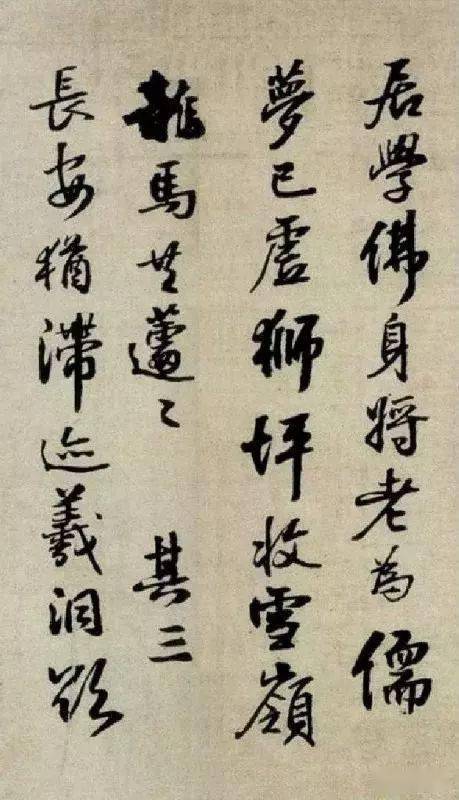 居學佛身將老為儒
夢已虛獅坪收雪嶺
馬共蘧〻 其三
長安猶滯迹羲洞欲